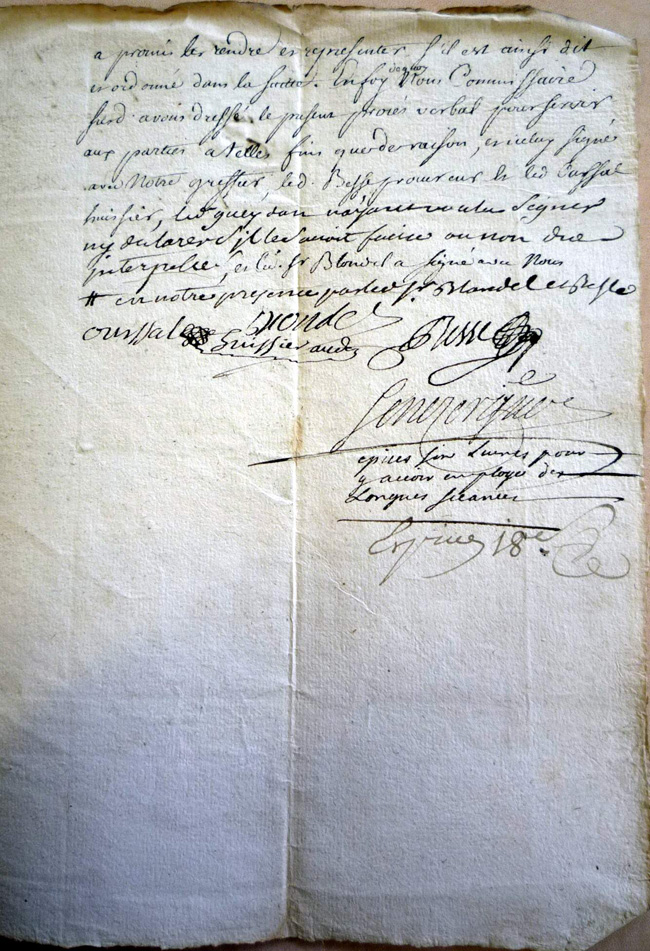 a promis les rendre et representer s'il est ainsi dit
et ordonné dans la suitte. En foy de quoy Nous Commissaire
susd. avons dressé le present procés verbal pour servir
aux parties a telles fins que de raison, et iceluy signé
avec Notre greffier, led. Besse procureur et led. Cassal
huissier, led. n'ayant voulu signer
ny declarer s'il le sauroit faire ou non de ce
interpellé, et led. Sr. Blondel a signé avec Nous
# en notre presence par led. Sr. Blondel et Besse
Blondel
huissier aud. Besse
epices six Livres pour
y avoir employé des
Longues seances
Espices 18